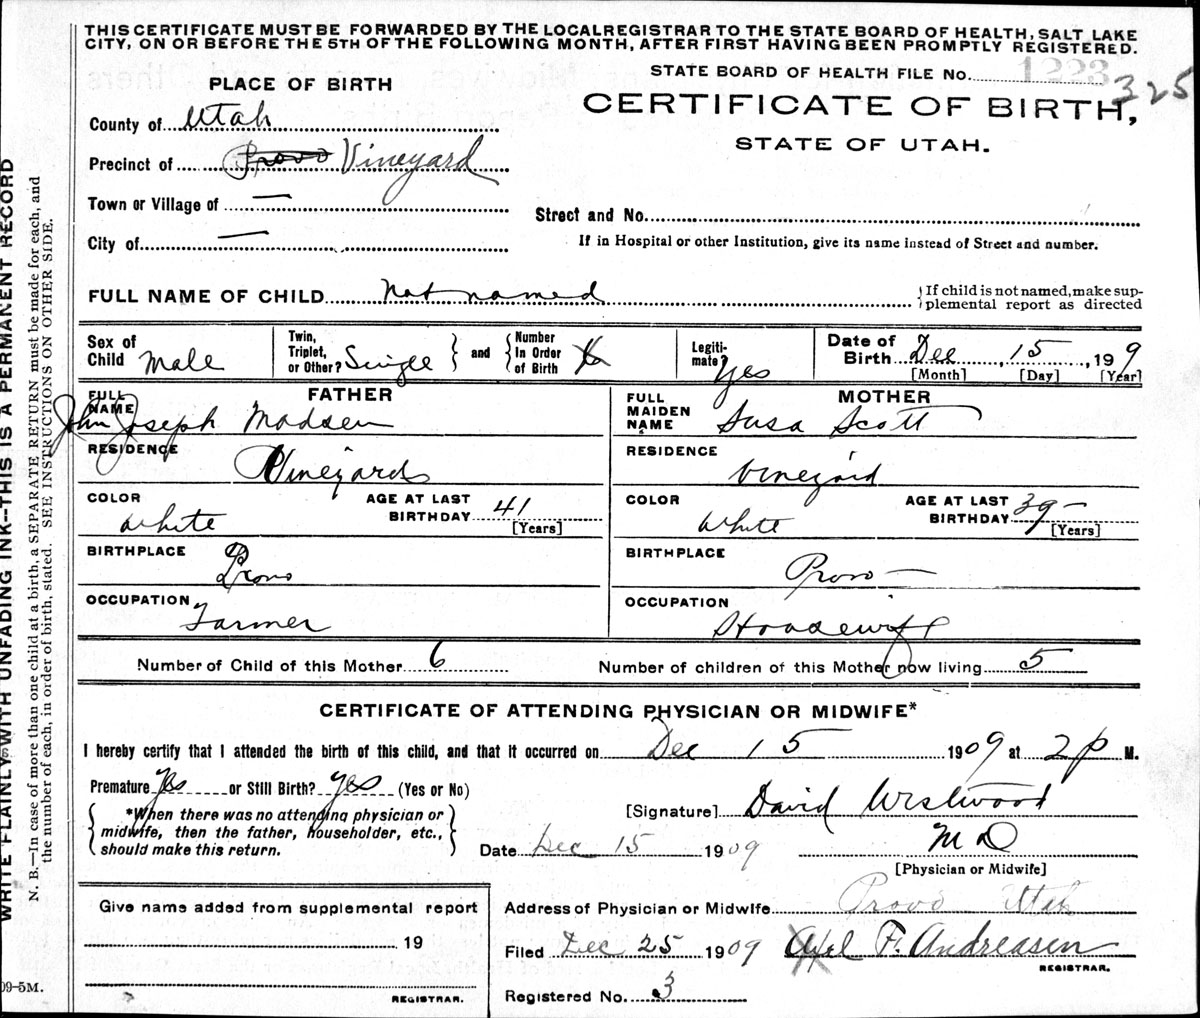 THIS CERTIFICATE MUST BE FORWARDED BY THE LOCAL REGISTRAR TO THE STATE BOARD OF HEALTH, SALT LAKE
CITY, ON OR BEFORE THE 5TH OF THE FOLLOWING MONTH, AFTER FIRST HAVING BEEN PROMPTLY REGISTERED.
STATE BOARD OF HEALTH FILE No. 1223 325
PLACE OF BIRTH
CERTIFICATE OF BIRTH,
STATE OF UTAH.
County of Utah
Precinct of Provo Vineyard
Town or Village of —
Street and No.
City of —
If in Hospital or other Institution, give its name instead of Street and number.
FULL NAME OF CHILD Not named
If child is not named, make sup-
plemental report as directed
Sex of Child Male
Twin, Triplet, or Other? Single and Number In Order of Birth
Legiti-mate? Yes
Date of Birth Dec, 15, 1909
[Month] [Day] [Year]
FATHER
FULL NAME John Joseph Madsen
RESIDENCE Vineyard
COLOR White
AGE AT LAST BIRTHDAY 41 [Years]
BIRTHPLACE Provo
OCCUPATION Farmer
MOTHER
FULL MAIDEN NAME Susa Scott
RESIDENCE Vineyard
COLOR White
AGE AT LAST BIRTHDAY 39 – [Years]
BIRTHPLACE Provo —
OCCUPATION Housewife
Number of Child of this Mother 6 Number of children of this Mother now living 5
CERTIFICATE OF ATTENDING PHYSICIAN OR MIDWIFE*
I hereby certify that I attended the birth of this child, and that it occurred on Dec 15 1909 at 2 p M.
Premature Yes or Still Birth? Yes (Yes or No)
*When there was no attending physician or
midwife, then the father, householder, etc.,
should make this return.
[Signature] David Westwood
M D
[Physician or Midwife]
Date Dec 15 1909
Address of Physician or Midwife Provo Utah
Give name added from supplemental report
19
REGISTRAR.
Filed Dec 25 1909 Axel F. Andreasen
REGISTRAR.
Registered No. 3
WRITE PLAINLY WITH UNFADING INK—THIS IS A PERMANENT RECORD
N. B.—In case of more than one child at a birth, a SEPARATE RETURN must be made for each, and
the number of each, in order of birth, stated. SEE INSTRUCTIONS ON OTHER SIDE.
09-5M.